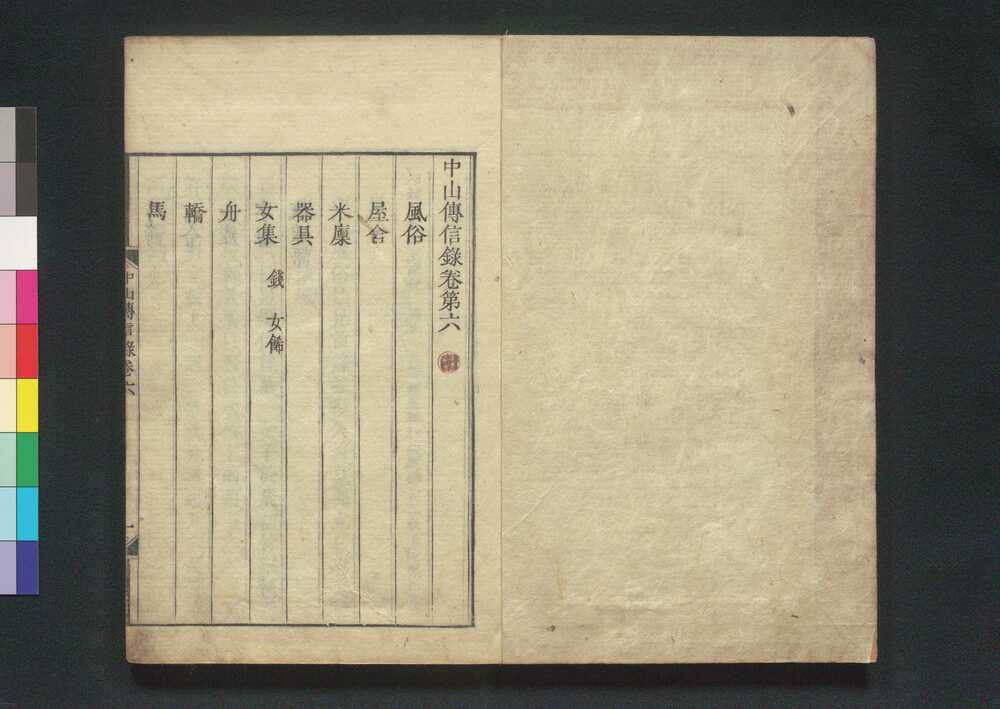 中山傳信錄卷第六
風俗
屋舍
米廩
器具
女集 錢 女飾
舟
轎
馬
中山傳信錄卷六 一